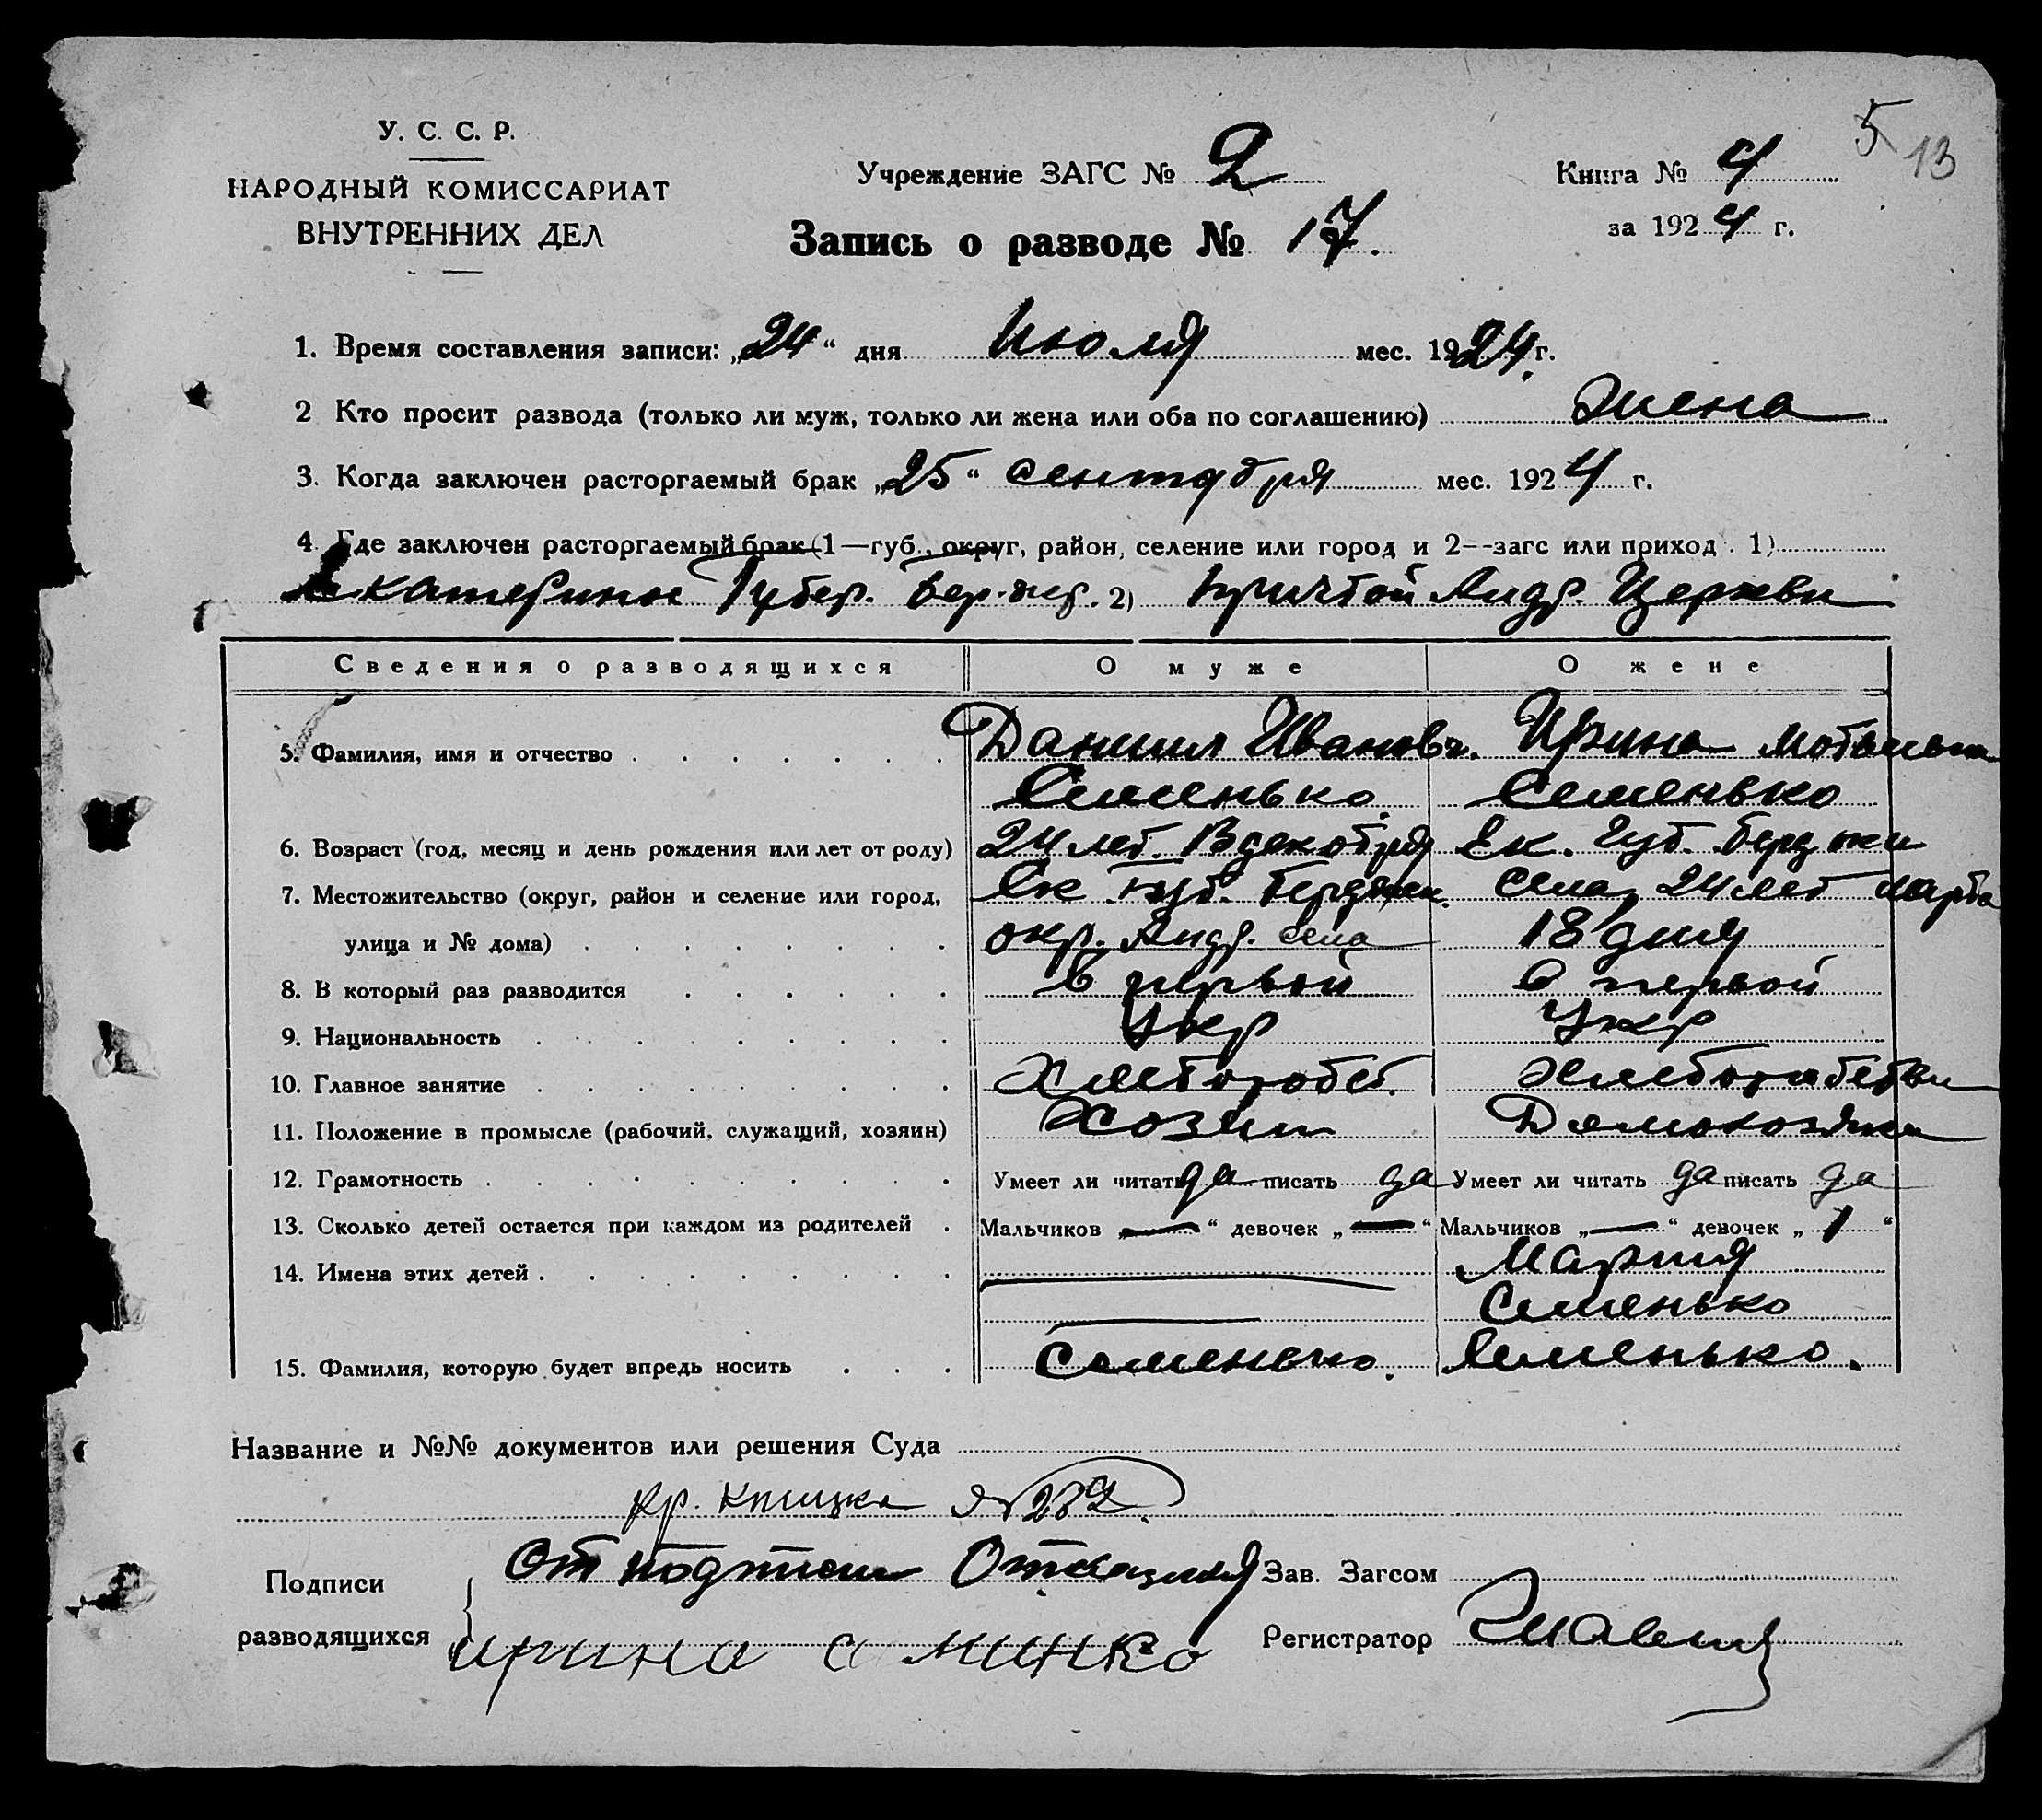 У. С. С. Р.
НАРОДНЫЙ КОМИССАРИАТ
ВНУТРЕННИХ ДЕЛ
Учреждение ЗАГС № 2
Запись о разводе № 17.
Книга № 4
за 1924 г.
5 13
1. Время составления записи: „24“ дня Июля мес. 1924 г.
2 Кто просит развода (только ли муж, только ли жена или оба по соглашению) Жена
3. Когда заключен расторгаемый брак „25“ сентября мес. 1924 г.
4. Где заключен расторгаемый брак (1—губ., округ, район, селение или город и 2--загс или приход. 1)
Екатерини Губер. 2) Причтой Андр. Церкви
Сведения о разводящихся О муже О жене
5. Фамилия, имя и отчество Даниил Иванов. Ирина
Семенько Семенько
6. Возраст (год, месяц и день рождения или лет от роду) 24 лет. Ек. Губ.
7. Местожительство (округ, район и селение или город, Ек. Губ. села, 24 лет марта
улица и № дома) окр. Андр. села 18 дня
8. В который раз разводится в первый в первой
9. Национальность Укр Укр
10. Главное занятие Хлебороб
11. Положение в промысле (рабочий, служащий, хозяин) Хозяин Домохозяйка
12. Грамотность Умеет ли читать да писать да Умеет ли читать да писать да
13. Сколько детей остается при каждом из родителей Мальчиков „—“ девочек „—“ Мальчиков „—“ девочек „1“
14. Имена этих детей Мария
Семенько
15. Фамилия, которую будет впредь носить Семенько. Семенько.
Название и №№ документов или решения Суда
кр. книжка №
Подписи От подписи Отказался Зав. Загсом
разводящихся ирина Регистратор